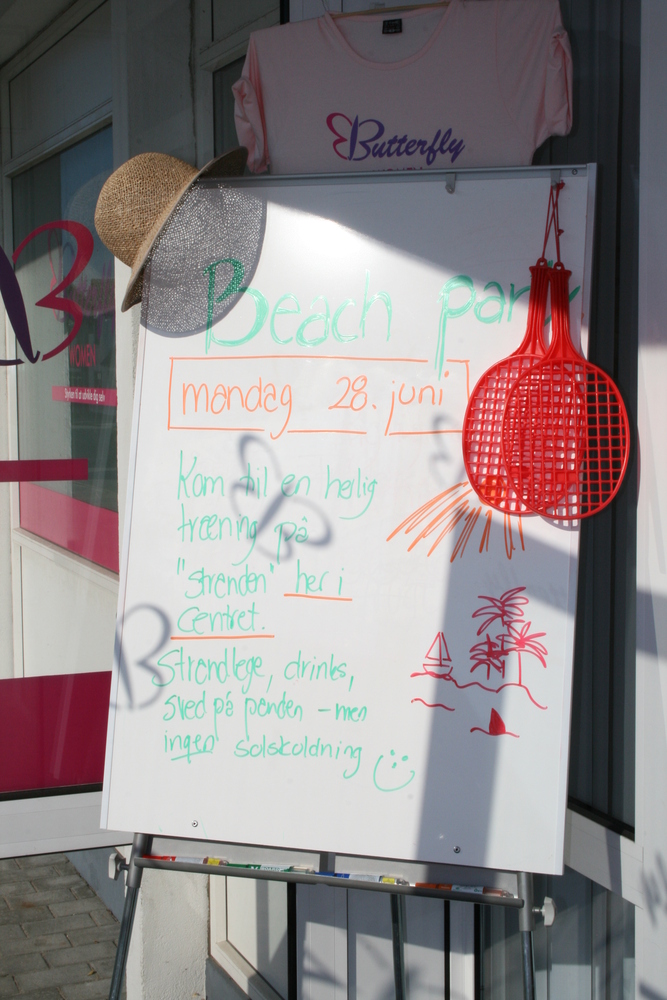 Butterfly
WOMEN
Beach party
mandag 28. juni
Kom til en herlig
træning på
"stranden" her i
Centret.
Strandlege, drinks,
sved på panden - men
ingen solskoldning